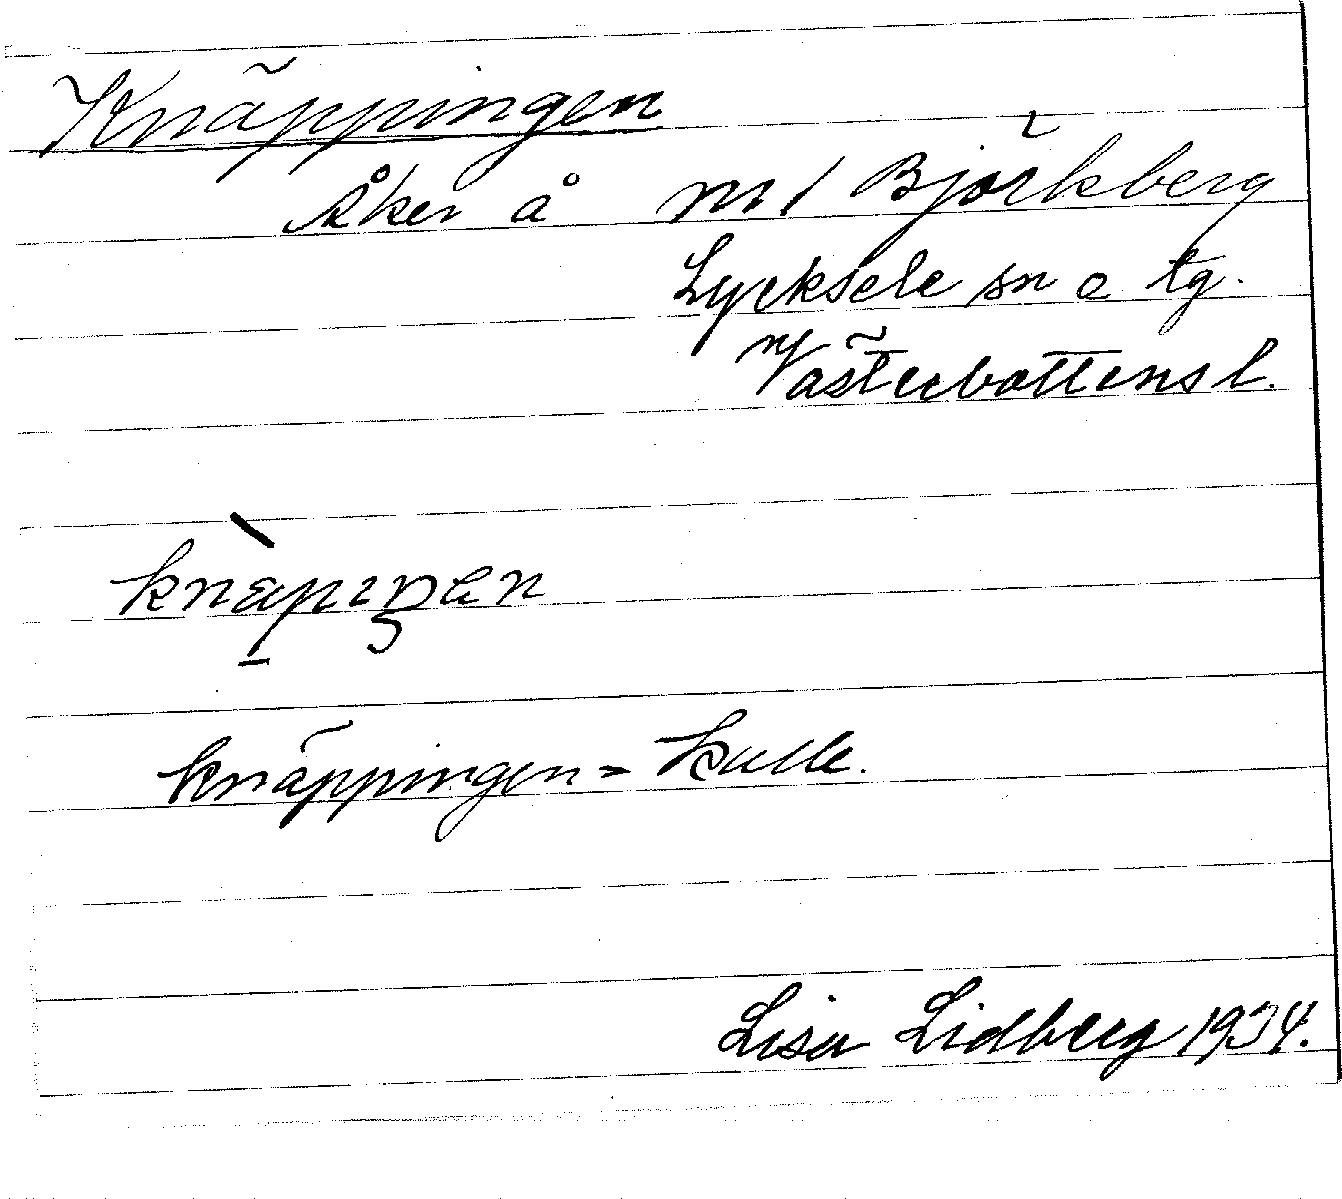 Knäppingen
Åker å m/ Björkberg
Lycksele sn o tg.
Västerbottens l.
knäppingen = kulle.
Lisa Lidberg 1934.